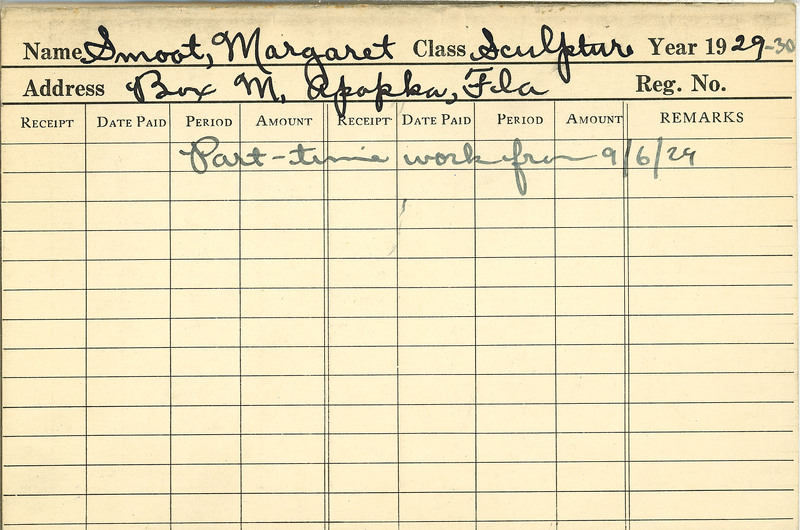 Name Smoot, Margaret Class Sculpture Year 1929-30
Address Box M, Apopka, Fla Reg. No.
RECEIPT DATE PAID PERIOD AMOUNT RECEIPT DATE PAID PERIOD AMOUNT REMARKS
Part-time work from 9/6/29